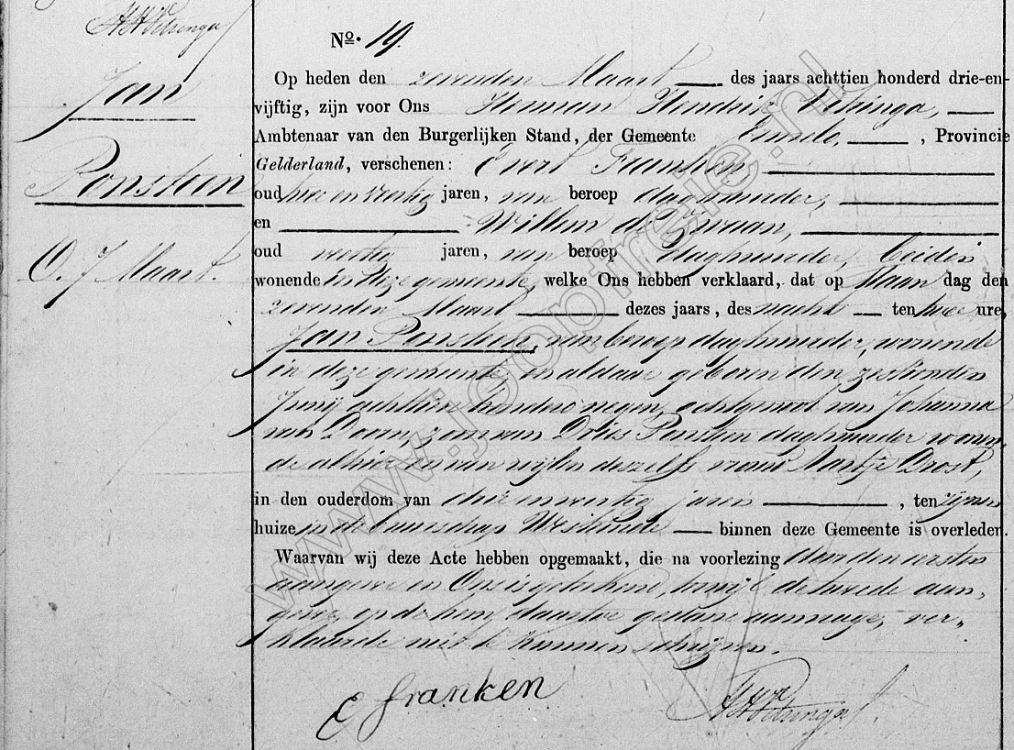 Jan
Ponstein
O. 7 Maart.
No. 19.
Op heden den zevenden Maart des jaars achttien honderd drie-en-
vijftig, zijn voor Ons Herman Hendrik Vitringa,
Ambtenaar van den Burgerlijken Stand, der Gemeente Ermelo, , Provincie
Gelderland, verschenen: Evert Franken
oud twee en veertig jaren, van beroep daghuurder,
en Willem de Zwaan,
oud veertig jaren, van beroep daghuurder, beiden
wonende in deze gemeente, welke Ons hebben verklaard, dat op Maan dag den
zevenden Maart dezes jaars, des nachts ten twee ure,
Jan Ponstein, van beroep daghuurder, wonende
in deze gemeente, en aldaar geboren den zestienden
Junij achttien honderd negen, echtgenoot van Johanna
van Doorn, zoon van Dries Ponstein daghuurder wonen-
de alhier en van wijlen deszelfs vrouw Aartje Drost,
in den ouderdom van drie en veertig jaren , ten zijnen
huize in de buurschap Westeinde binnen deze Gemeente is overleden.
Waarvan wij deze Acte hebben opgemaakt, die na voorlezing door den eersten
aangever en Ons is geteekend, terwijl de tweede aan-
gever, op de hem daartoe gedane aanvrage, ver-
klaarde niet te kunnen schrijven.
E Franken
HHVitringa
www.jeoptreie.nl